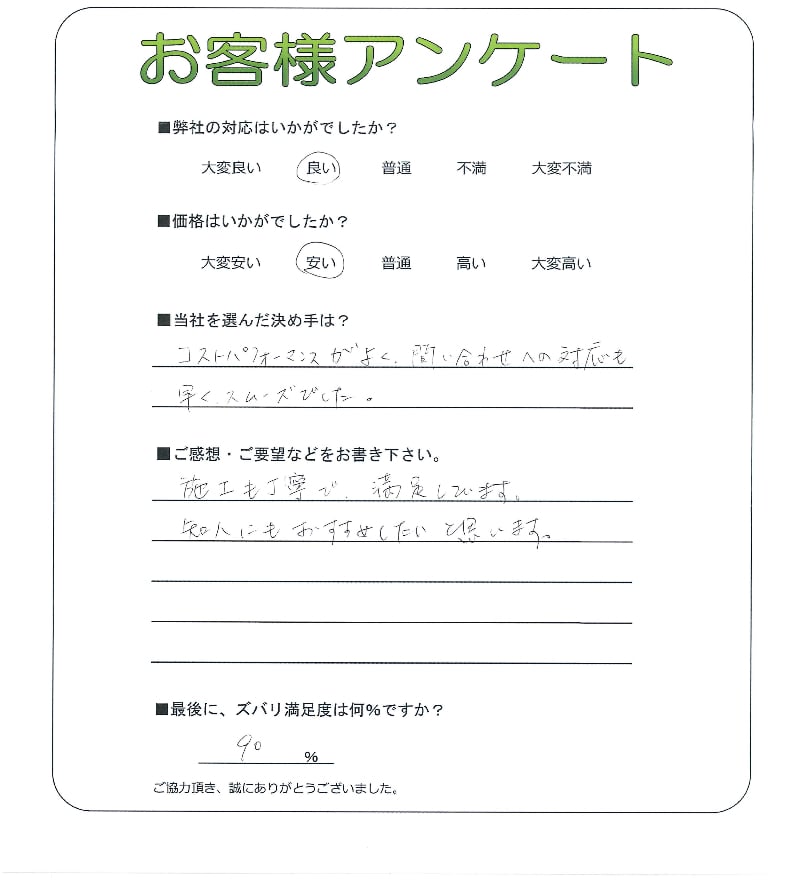 お客様アンケート
■弊社の対応はいかがでしたか？
大変良い 良い 普通 不満 大変不満
■価格はいかがでしたか？
大変安い 安い 普通 高い 大変高い
■当社を選んだ決め手は？
コストパフォーマンスがよく、問い合わせへの対応も
早く、スムーズでした。
■ご感想・ご要望などをお書き下さい。
施工も丁寧で、満足しています。
知人にもおすすめしたいと思います。
■最後に、ズバリ満足度は何％ですか？
90 ％
ご協力頂き、誠にありがとうございました。